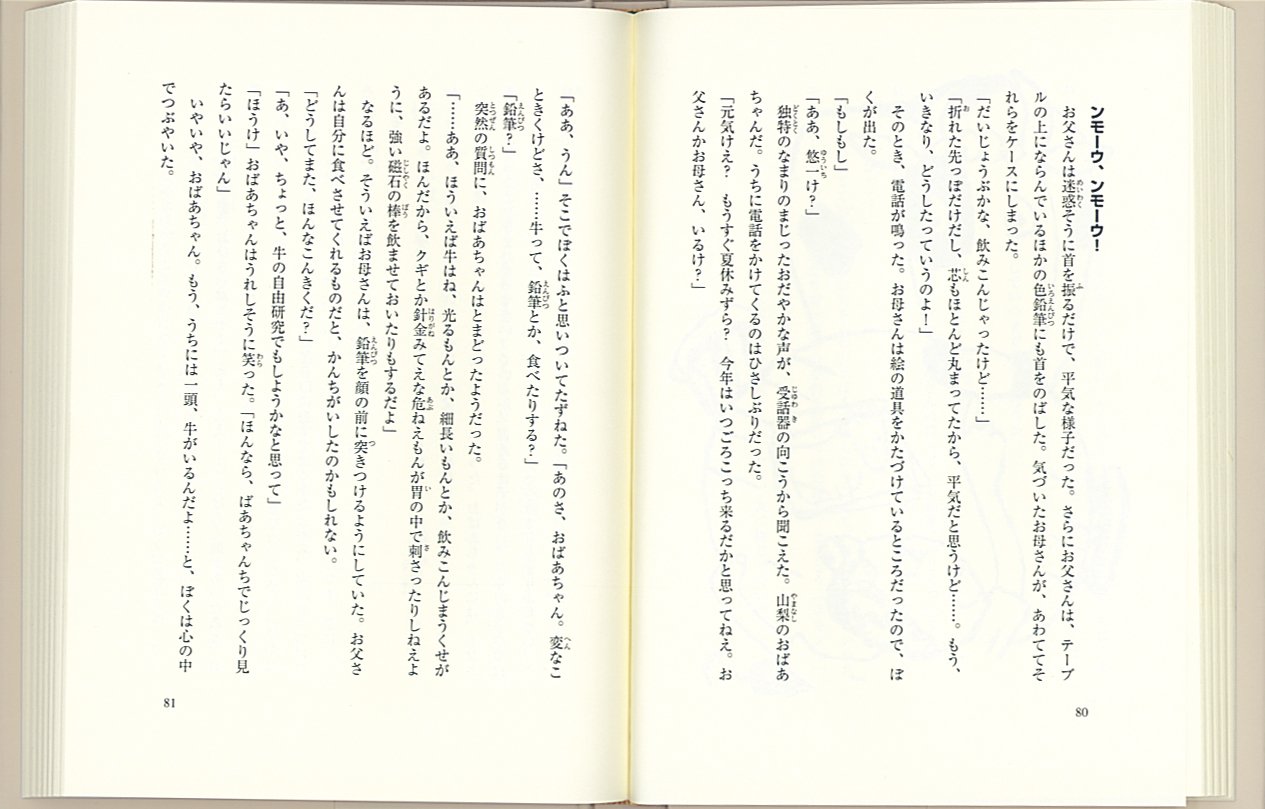 ンモーウ、ンモーウ！
お父さんは迷惑そうに首を振るだけで、平気な様子だった。さらにお父さんは、テーブ
ルの上にならんでいるほかの色鉛筆にも首をのばした。気づいたお母さんが、あわててそ
れらをケースにしまった。
「だいじょうぶかな、飲みこんじゃったけど……」
「折れた先っぽだけだし、芯もほとんど丸まってたから、平気だと思うけど……。もう、
いきなり、どうしたっていうのよ！」
そのとき、電話が鳴った。お母さんは絵の道具をかたづけているところだったので、ぼ
くが出た。
「もしもし」
「ああ、悠一け？」
独特のなまりのまじったおだやかな声が、受話器の向こうから聞こえた。山梨のおばあ
ちゃんだ。うちに電話をかけてくるのはひさしぶりだった。
「元気けえ？　もうすぐ夏休みずら？　今年はいつごろこっち来るだかと思ってねえ。お
父さんかお母さん、いるけ？」
80
「ああ、うん」そこでぼくはふと思いついてたずねた。「あのさ、おばあちゃん。変なこ
ときくけどさ、……牛って、鉛筆とか、食べたりする？」
「鉛筆？」
突然の質問に、おばあちゃんはとまどったようだった。
「……ああ、ほういえば牛はね、光るもんとか、細長いもんとか、飲みこんじまうくせが
あるだよ。ほんだから、クギとか針金みてえな危ねえもんが胃の中で刺さったりしねえよ
うに、強い磁石の棒を飲ませておいたりもするだよ」
なるほど。そういえばお母さんは、鉛筆を顔の前に突きつけるようにしていた。お父さ
んは自分に食べさせてくれるものだと、かんちがいしたのかもしれない。
「どうしてまた、ほんなこんきくだ？」
「あ、いや、ちょっと、牛の自由研究でもしようかなと思って」
「ほうけ」おばあちゃんはうれしそうに笑った。「ほんなら、ばあちゃんちでじっくり見
たらいいじゃん」
いやいや、おばあちゃん。もう、うちには一頭、牛がいるんだよ……と、ぼくは心の中
でつぶやいた。
81